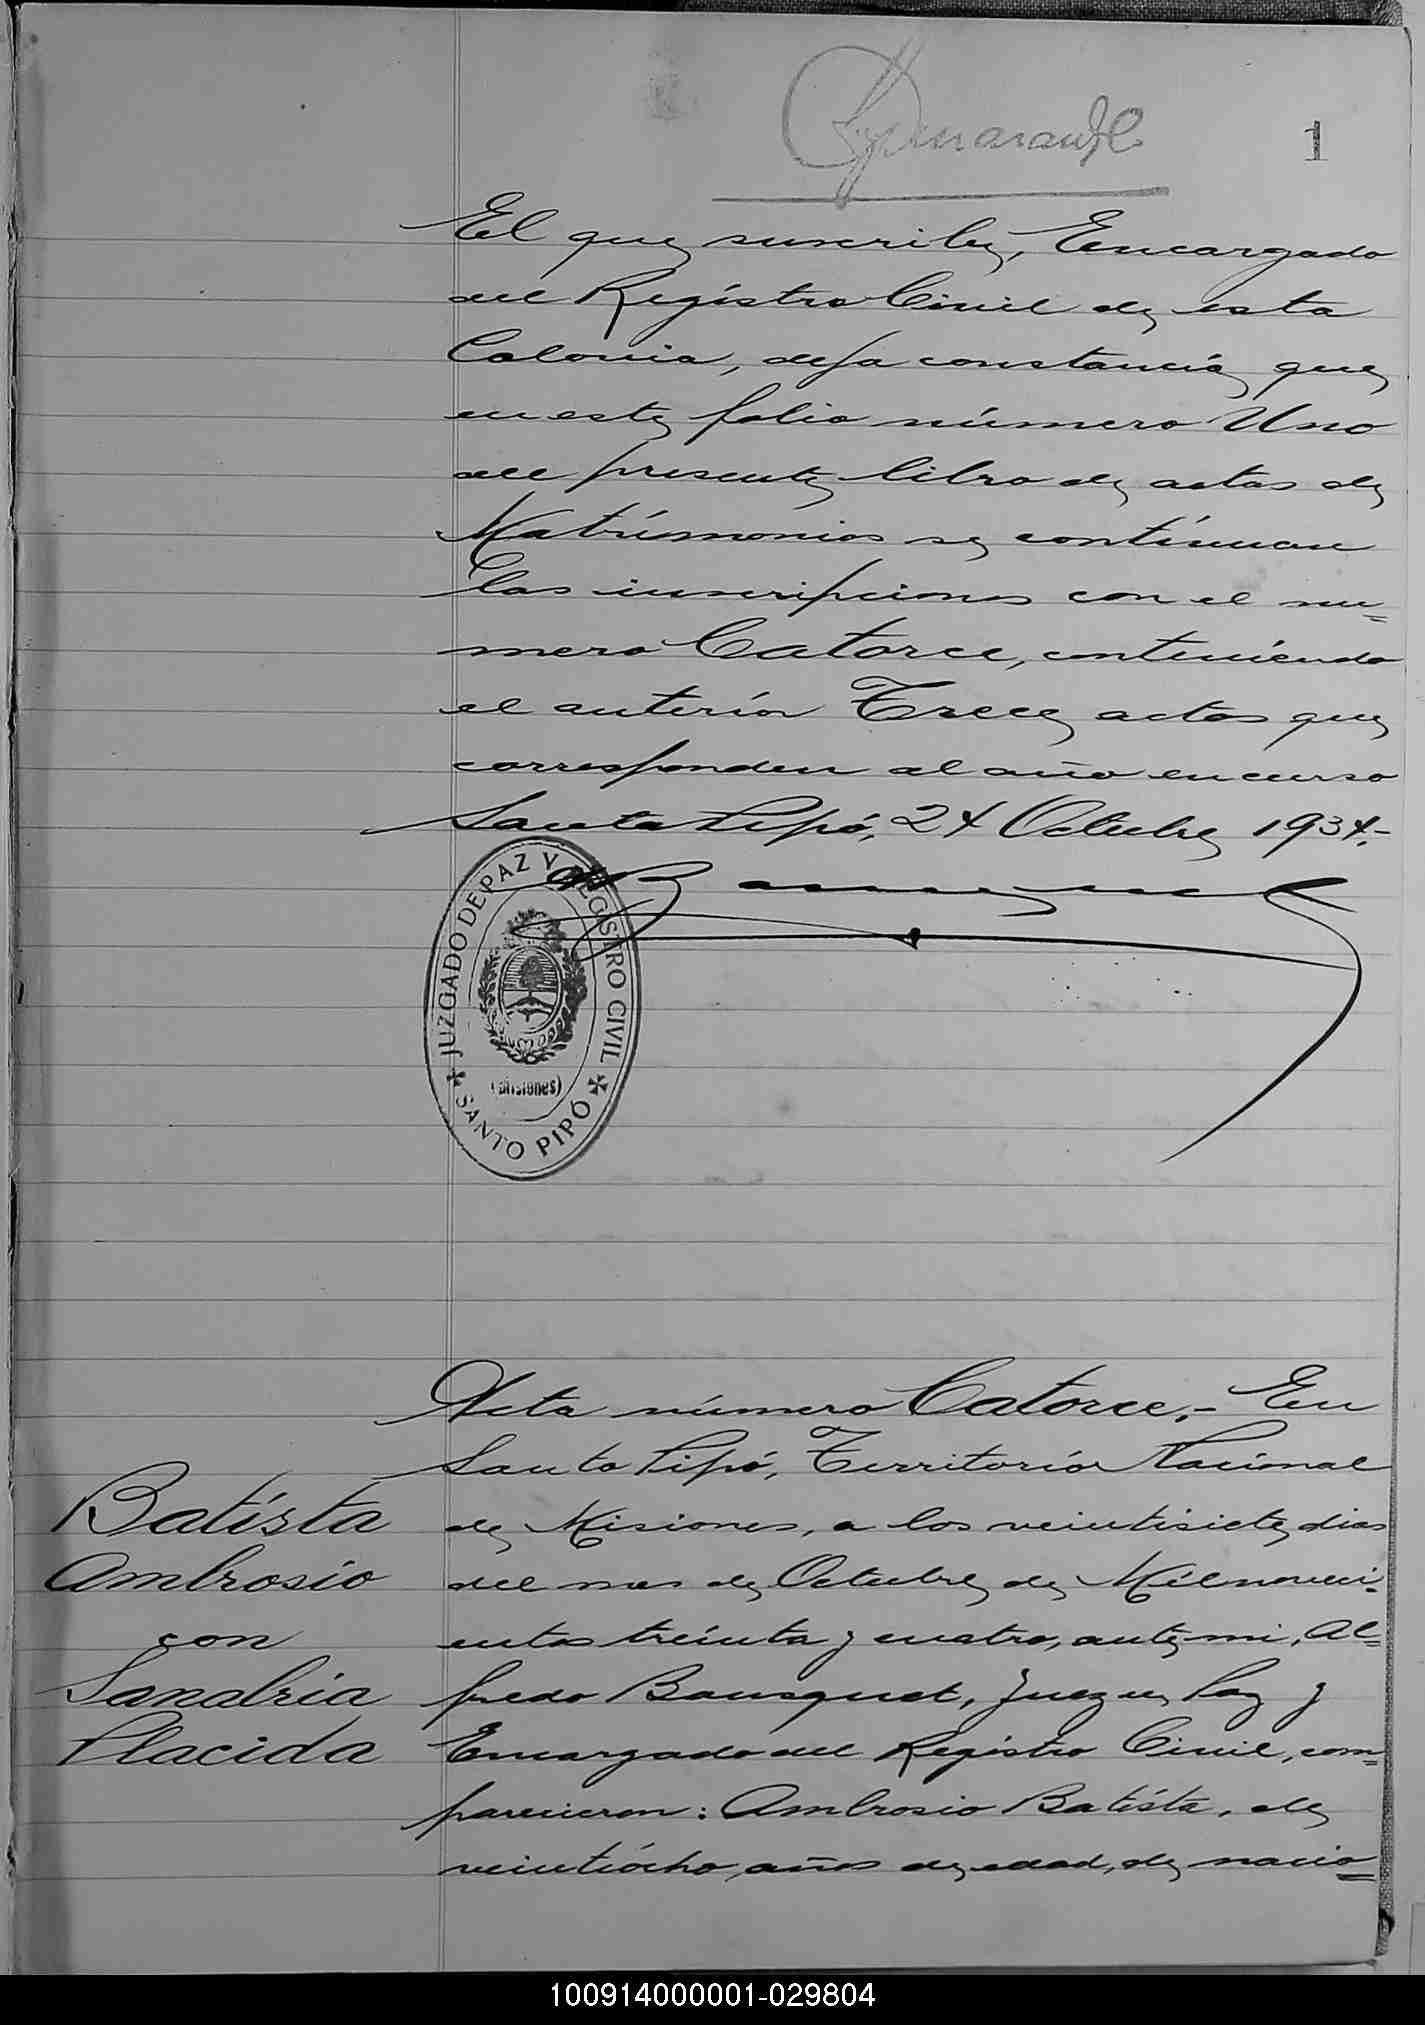 1
El que suscribe, Encargado
del Registro Civil de esta
Colonia, deja constancia que
en este folio número Uno
del presente libro de actas de
Matrimonios se continuan
las inscripciones con el nu=
mero Catorce, conteniendo
el anterior Trece actas que
corresponden al año en curso
Santo Pipó, 24 Octubre 1934.-
JUZGADO DE PAZ Y REGISTRO CIVIL
(Misiones)
SANTO PIPÓ
Acta número Catorce.- En
Santo Pipó, Territorio Nacional
de Misiones, a los veintisiete dias
del mes de Octubre de Milnoveci-
entos treinta y cuatro, ante mi, Al=
fredo Bousquet, Juez de Paz y
Encargado del Registro Civil, com=
parecieron: Ambrosio Batista, de
veintiocho años de edad, de nacio=
Batista
Ambrosio
con
Sanabria
Placida
100914000001-029804